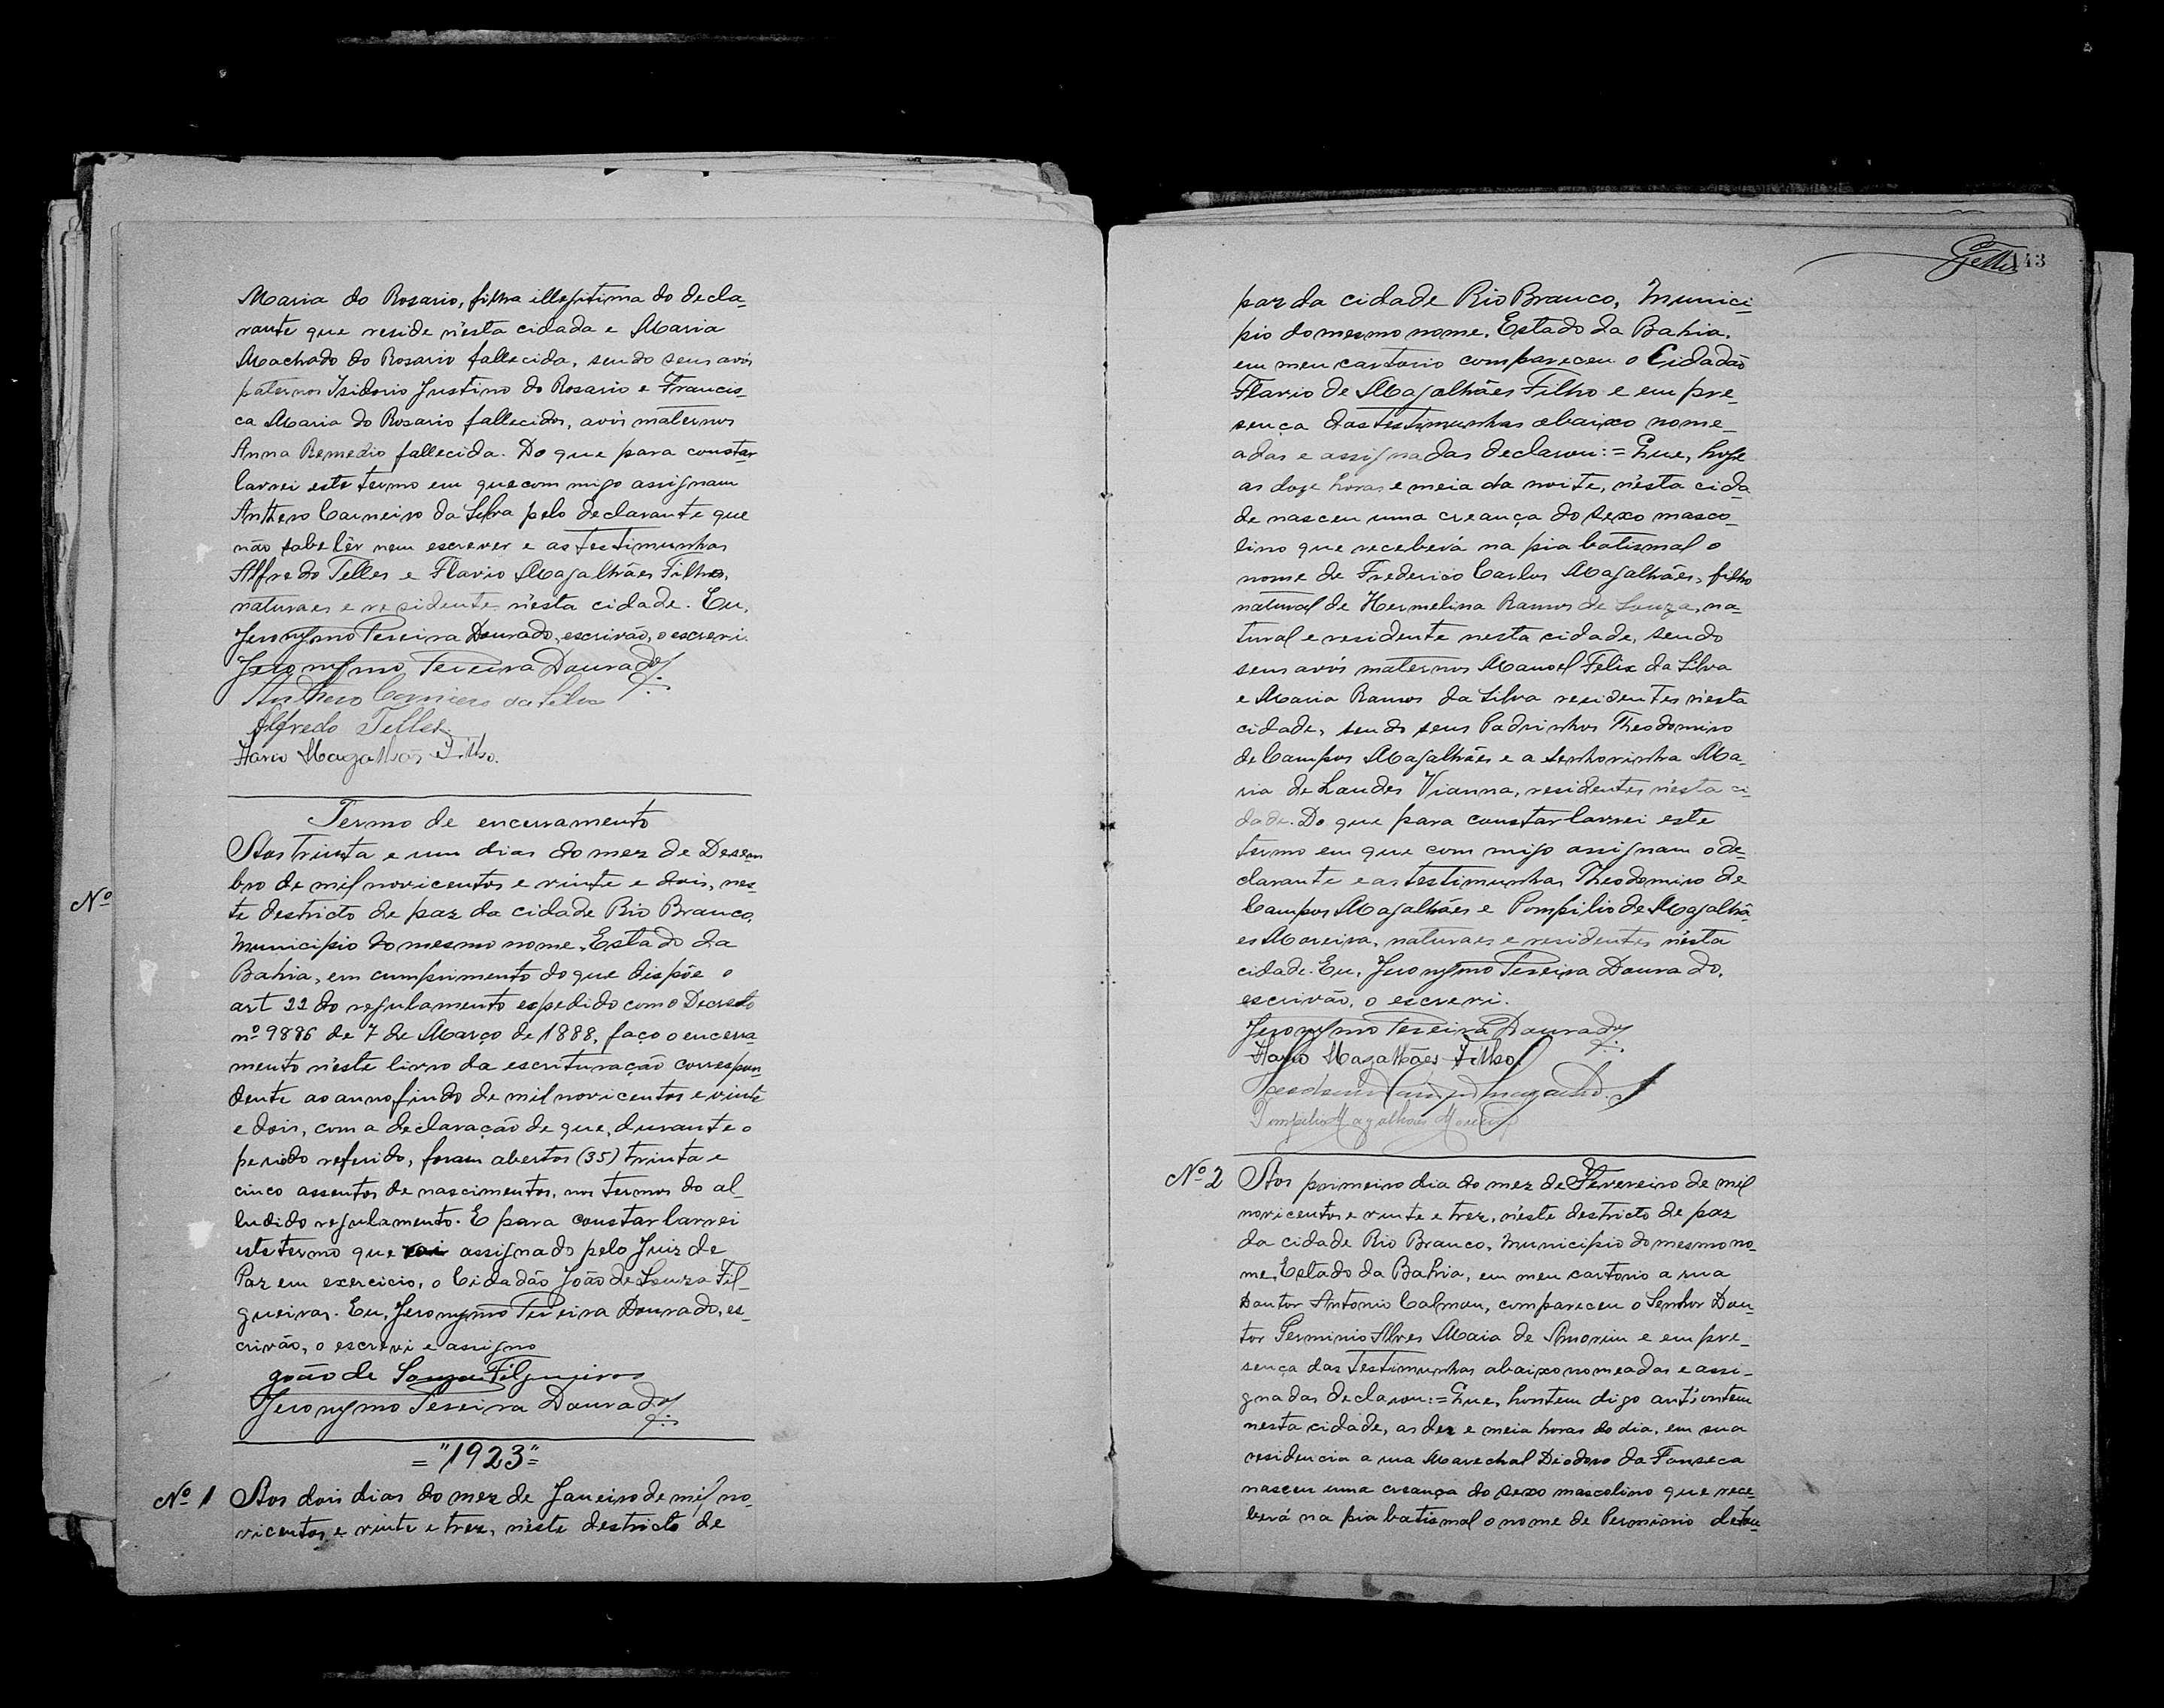 Maria do Rosario, filha illegitima do decla-
rante que reside n'esta cidada e Maria
Machado do Rosario fallecida, sendo seus avós
paternos Isidorio Justino do Rosario e Francis-
ca Maria do Rosario fallecidos, avós maternos
Anna Remedio fallecida. Do que para constar
lavrei este termo em que com migo assignam
Anthero Carneiro da Silva pelo declarante que
não sabe lêr nem escrever e as testimunhas
Alfredo Telles e Flavio Magalhães Filho,
naturaes e residentes n'esta cidade. Eu,
Jeronymo Pereira Dourado, escrivão, o escrevi.
Jeronymo Pereira Dourado
Anthero Carneiro da Silva
Alfredo Telles
Flavio Magalhães Filho.
Termo de encerramento
Aos trinta e um dias do mez de Desem
bro de mil novicentos e vinte e dois, nes-
te destricto de paz da cidade Rio Branco,
Municipio do mesmo nome, Estado da
Nº
Bahia, em cumprimento do que dispõe o
art 22 do regulamento expedido com o Decreto
nº 9886 de 7 de Março de 1888, faço o encerra-
mento n'este livro da escrituração correspon-
dente ao anno findo de mil novicentos e vinte
e dois, com a declaração de que, durante o
periodo referido, foram abertos (35) trinta e
cinco assentos de nascimentos, nos termos do al-
ludido regulamento. E para constar lavrei
este termo que vai assignado pelo Juiz de
Paz em exercicio, o Cidadão João de Souza Fil-
gueiras. Eu, Jeronymo Pereira Dourado, es-
crivão, o escrevi e assigno
João de Souza Filgueiras
Jeronymo Pereira Dourado
="1923"=
Nº 1 Aos dois dias do mez de Janeiro de mil no-
vicentos e vinte e trez, n'este destricto de
143
paz da cidade Rio Branco, Munici-
pio do mesmo nome, Estado da Bahia,
em meu cartorio compareceu o Cidadão
Flavio de Magalhães Filho e em pre-
sença das testimunhas abaixo nome-
adas e assignadas declarou:= Que, hoje
as doze horas e meia da noite, n'esta cida-
de nasceu uma creança do sexo masco-
lino que receberá na pia batismal o
nome de Frederico Carlos Magalhães, filho
natural de Hermelina Ramos de Souza, na-
tural e residente nesta cidade, sendo
seus avós maternos Manoel Felix da Silva
e Maria Ramos da Silva residentes n'esta
cidade, sendo seus Padrinhos Theodomiro
de Campos Magalhães e a senhorinha Ma-
ria de Lourdes Vianna, residentes n'esta ci-
dade. Do que para constar lavrei este
termo em que com migo assignam o de-
clarante e as testimunhas Theodomiro de
Campos Magalhães e Pompilio de Magalhã-
es Moreira, naturaes e residentes n'esta
cidade. Eu, Jeronymo Pereira Dourado,
escrivão, o escrevi.
Jeronymo Pereira Dourado
Flavio Magalhães Filho
Pompilio Magalhães Moreira
Nº 2 Aos primeiro dia do mez de Fevereiro de mil
novicentos e vinte e trez, n'este destricto de paz
da cidade Rio Branco, Municipio do mesmo no-
me, Estado da Bahia, em meu cartorio a rua
Doutor Antonio Calmon, compareceu o Senhor Dou-
tor Perminio Alves Maia de Amorim e em pre-
sença das Testimunhas abaixo nomeadas e assi-
gnadas declarou:= Que, hontem digo anti'ontem
nesta cidade, as dez e meia horas do dia, em sua
residencia a rua Marechal Diodoro da Fonseca
nasceu uma creança do sexo mascolino que rece-
berá na pia batismal o nome de Perminio